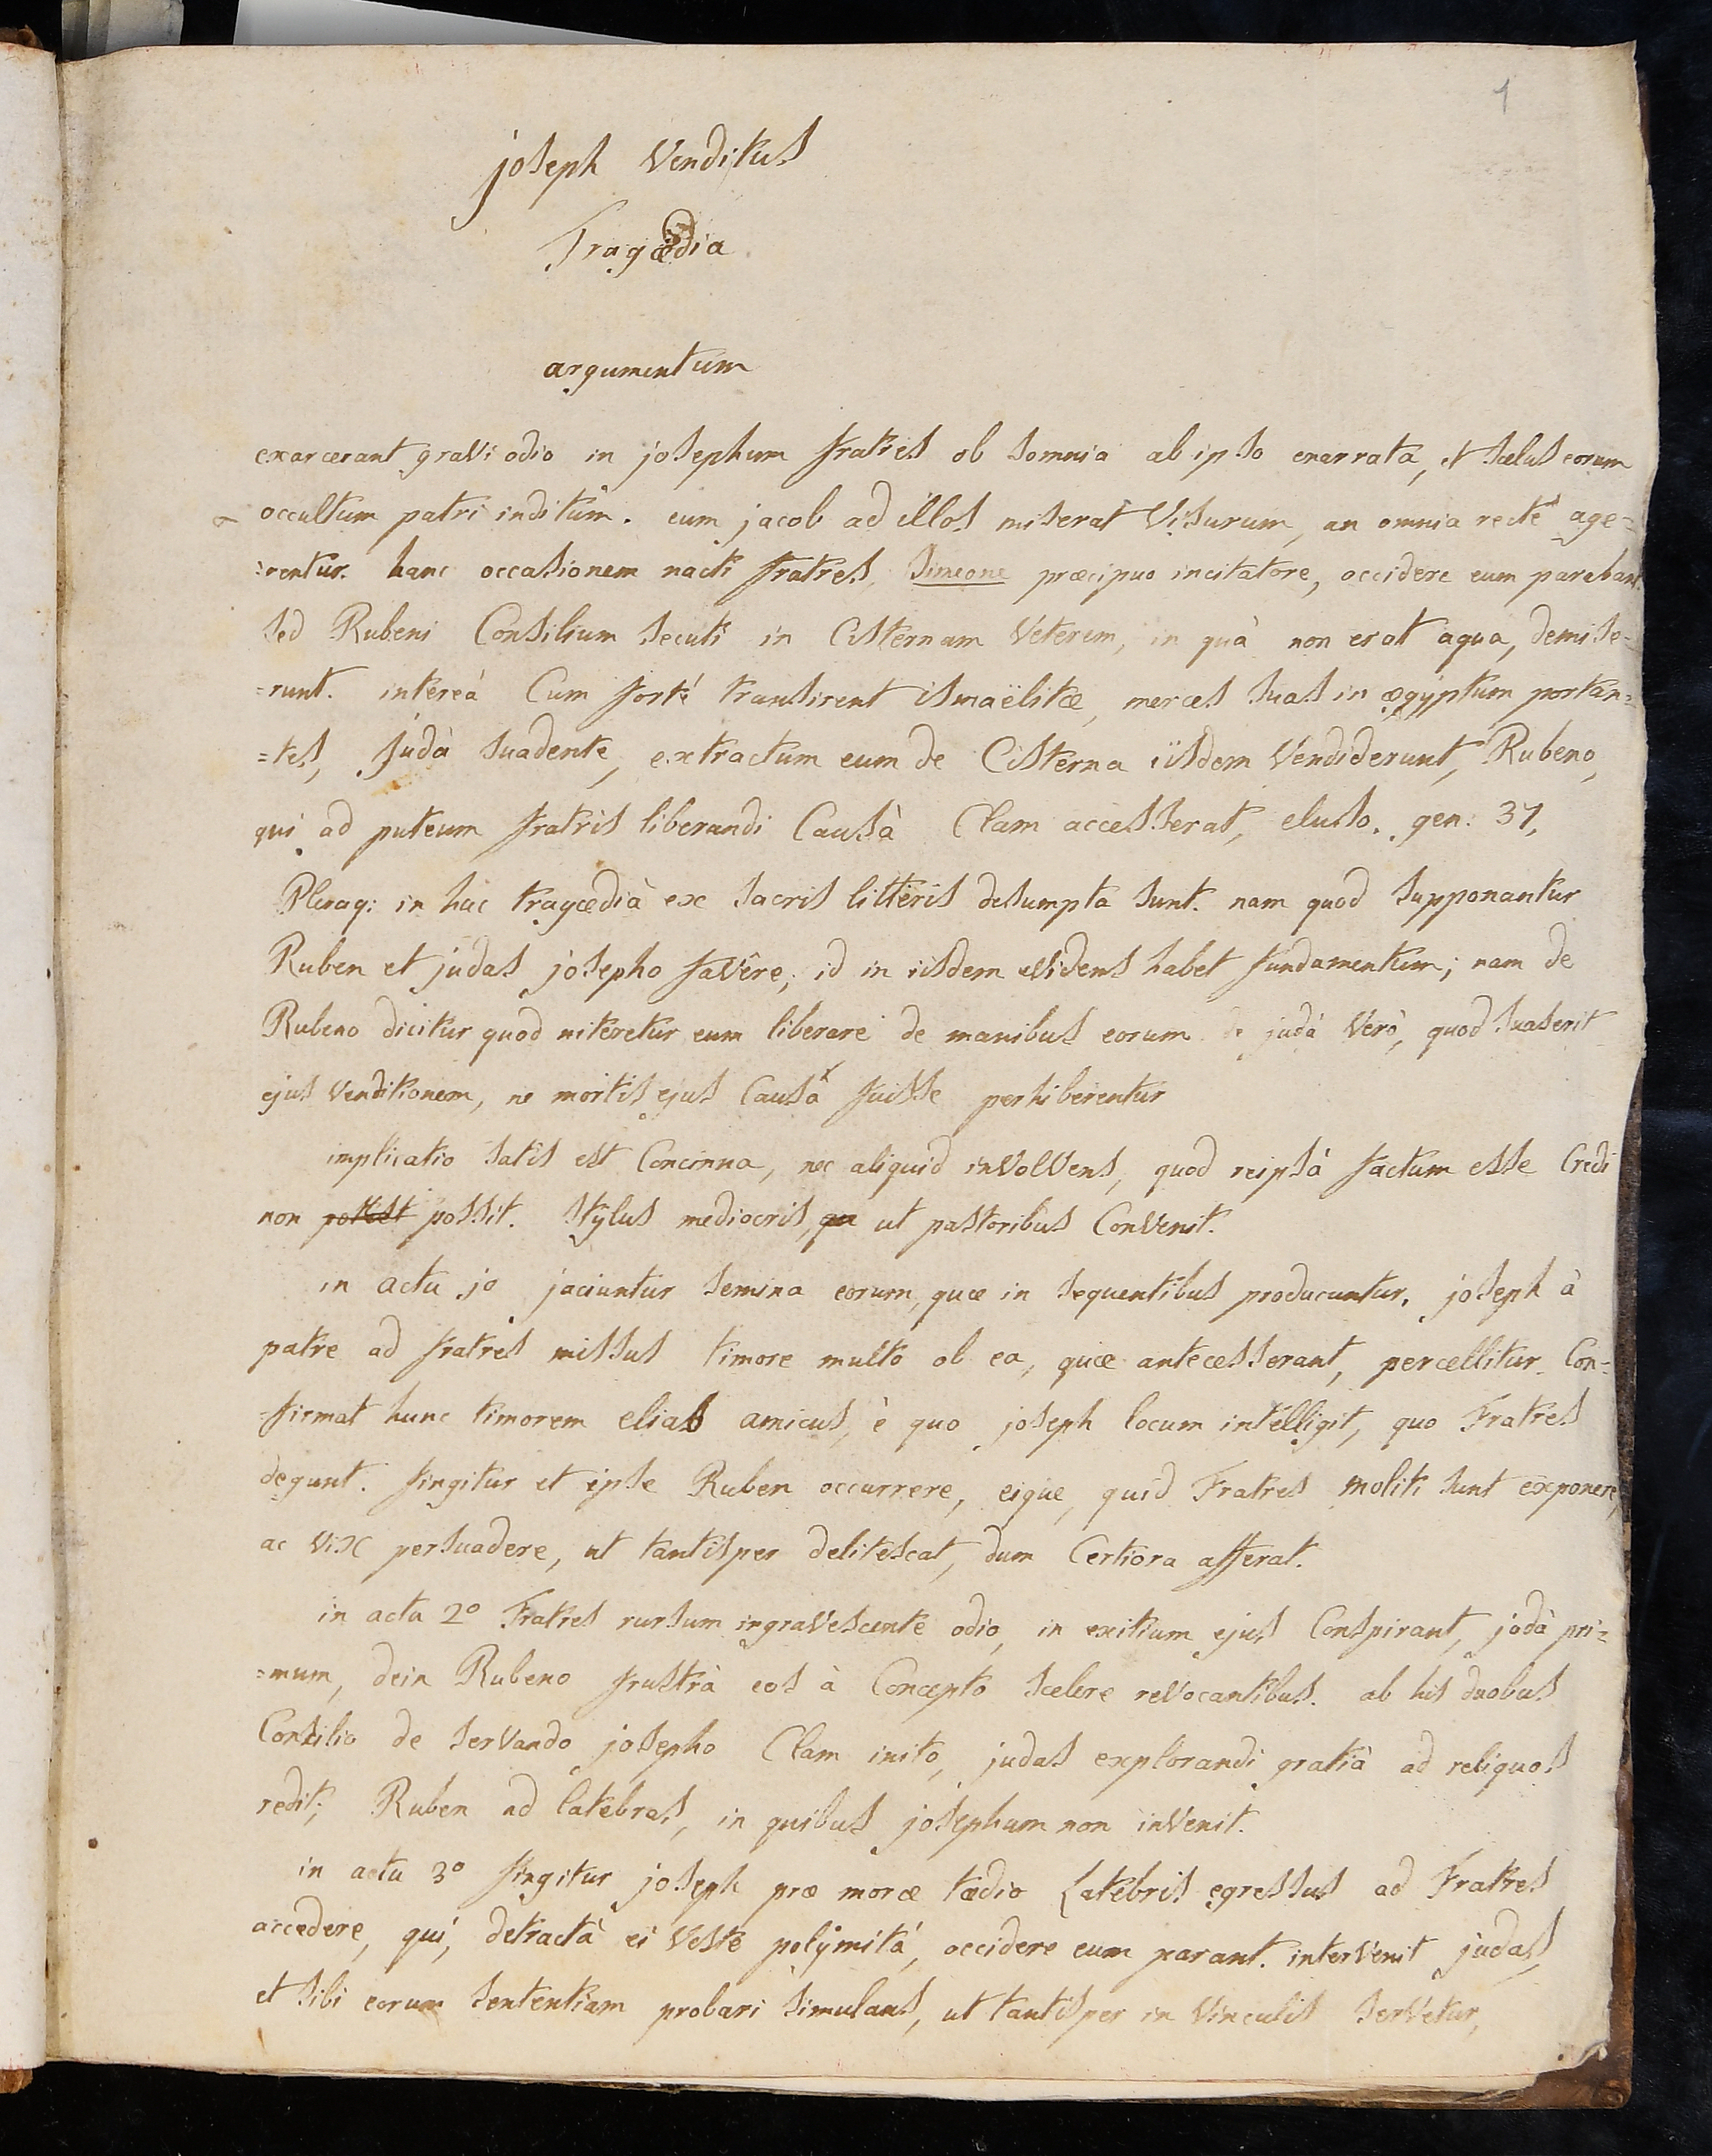 1
joseph Venditus
Tragœdia
argumentum
exarcerant gravi odio in josephum fratres ob somnia ab ipso enarrata, et scelus eorum
occultum patri inditum. eum jacob ad illos miserat Visurum, an omnia rectè age=
=rentur. hanc occasionem nacti fratres, Simeone præcipuo incitatore, occidere eum parabant.
sed Rubeni Consilium secuti in Cisternam Veterem, in quà non erat aqua, demise=
=runt. intereà Cum fortè transirent ismaëlitæ, merces suas in ægÿptum portan=
=tes, Judà suadente, extractum eum de Cisterna iisdem Vendiderunt, Rubeno,
qui ad puteum fratris liberandi Causà Clam accesserat, eluso. gen: 37,
Pleraq: in hac tragœdià ex sacris litteris desumpta sunt. nam quod supponantur
Ruben et judas josepho favêre, id in iisdem evidens habet fundamentum; nam de
Rubeno dicitur quod niteretur eum liberare de manibus eorum de judà Verò, quod suaserit
ejus Venditionem, ne mortis ejus Causa fuisse perhiberentur
implicatio satis est Concinna, nec aliquid inVolVens, quod reipsà factum esse Credi
non possit. Stÿlus mediocris, ut pastoribus Convenit.
in actu jo jaciuntur semina eorum, quæ in sequentibus producuntur. joseph à
patre ad fratres missus timore multo ob ea, quæ antecesserant, percellitur. Con=
=firmat hunc timorem elias amicus, è quo joseph locum intelligit, quo Fratres
degunt. fingitur et ipse Ruben occurrere, eique, quid Fratres moliti sunt exponere,
ac vix persuadere, ut tantisper delitescat, dum Certiora afferat.
in actu 2º Fratres rursum ingraVescente odio, in exitium ejus Conspirant, jodà pri=
=mum, dein Rubeno frustrà eos à Concepto scelere reVocantibus. ab his duobus
Consilio de serVando josepho Clam inito, judas explorandi gratià ad reliquos
redit; Ruben ad latebras, in quibus josephum non inVenit.
in actu 3º fingitur joseph præ moræ tædio Latebris egressus ad Fratres
accedere, qui, detractà ei Veste polÿmità, occidere eum parant. interVenit judas,
et sibi eorum sententiam probari simulans, ut tantisper in Vinculis serVetur,